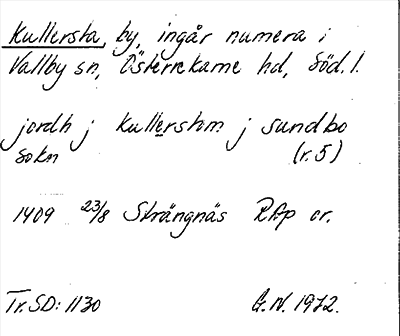 Kullersta, by, ingår numera i
Vallby sn, Österrekarne hd, Söd. l.
jordh j kullerstom j sundbo
sokn (r. 5)
1409 23/8 Strängnäs RAp or.
Tr. SD: 1130 G.N. 1972.